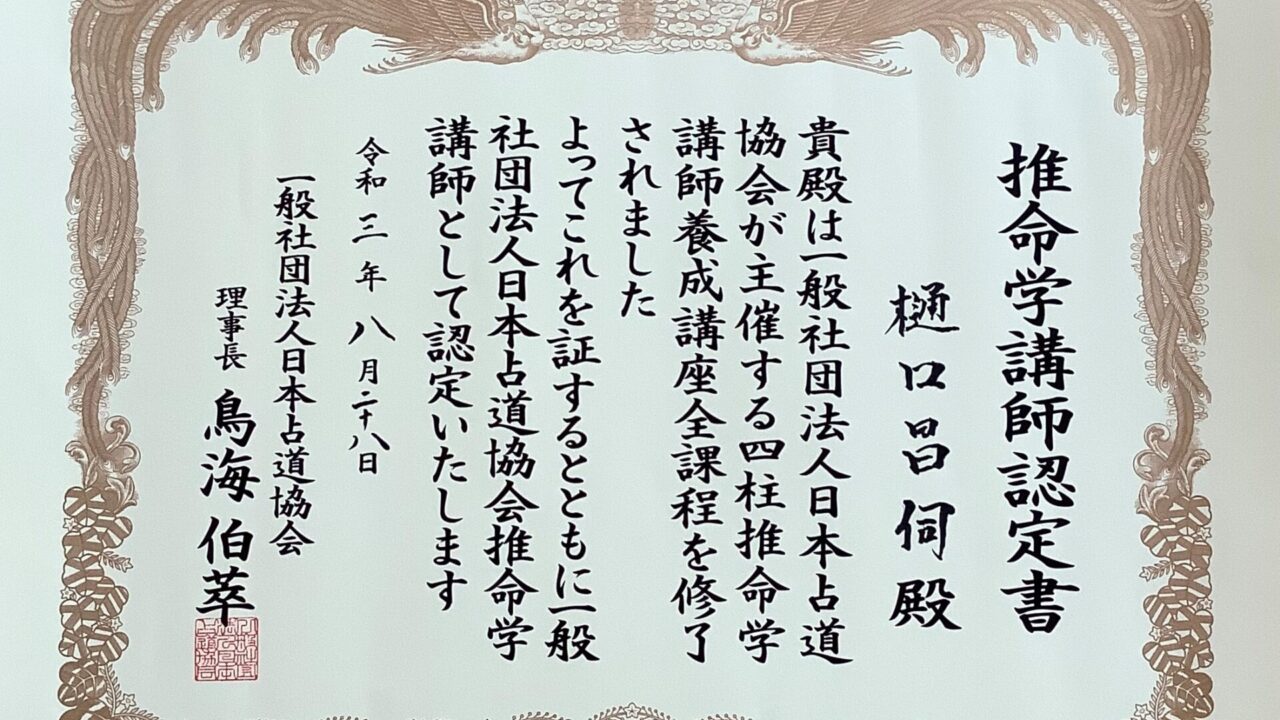 推命学講師認定書
樋口昌伺殿
貴殿は一般社団法人日本占道
協会が主催する四柱推命学
講師養成講座全課程を修了
されました
よってこれを証するとともに一般
社団法人日本占道協会推命学
講師として認定いたします
令和三年八月二十八日
一般社団法人日本占道協会
理事長 鳥海伯萃